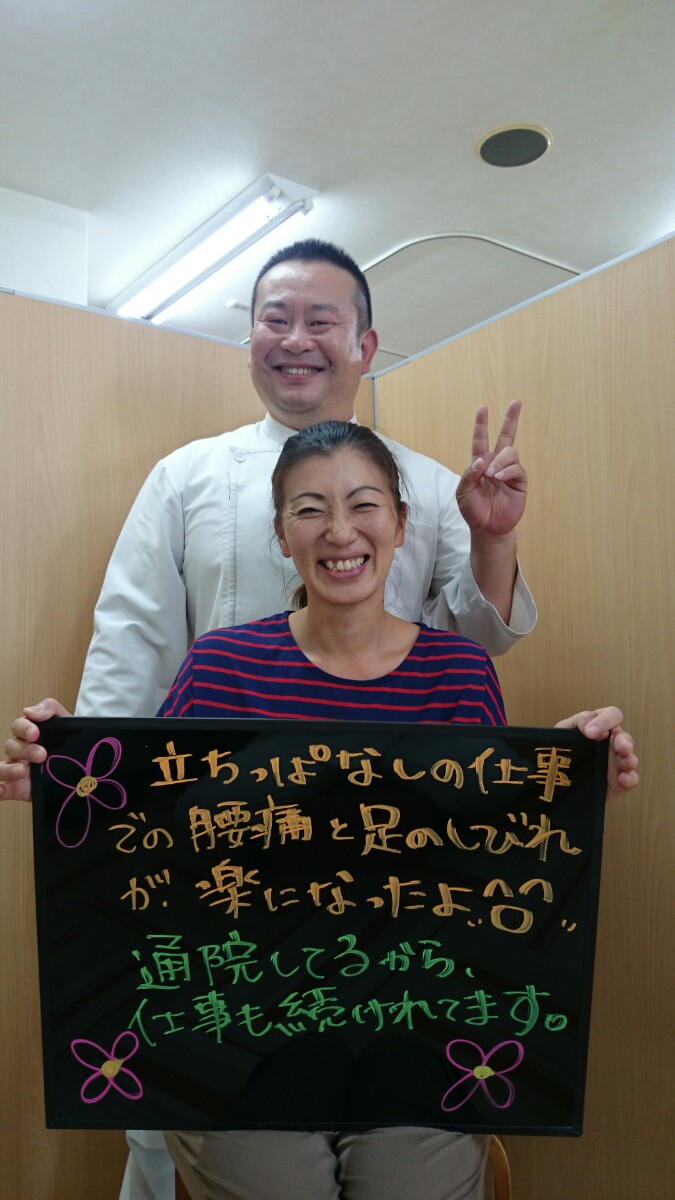 立ちっぱなしの仕事
での腰痛と足のしびれ
が楽になったよ^口^
通院してるから、
仕事も続けれてます。